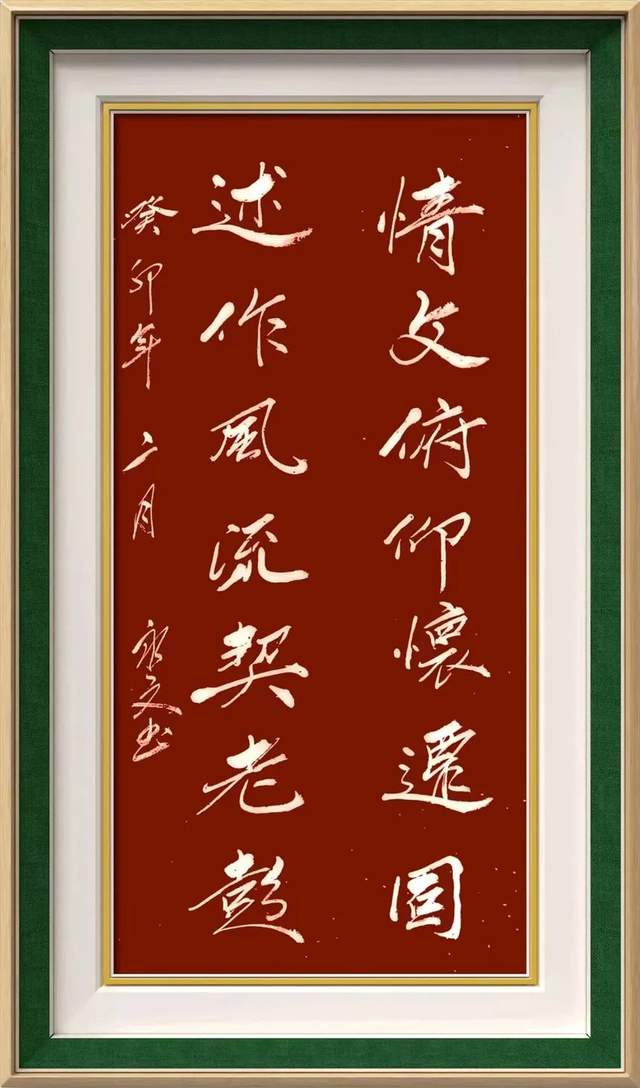 情文俯仰懷遷固
述作風流契老彭
癸卯年 二月 永文书